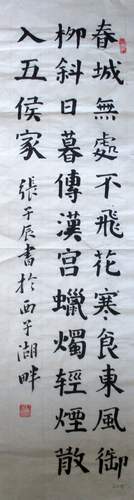 春城無處不飛花寒食東風御
柳斜日暮傳漢宮蠟燭輕煙散
入五侯家
張子辰書於西子湖畔